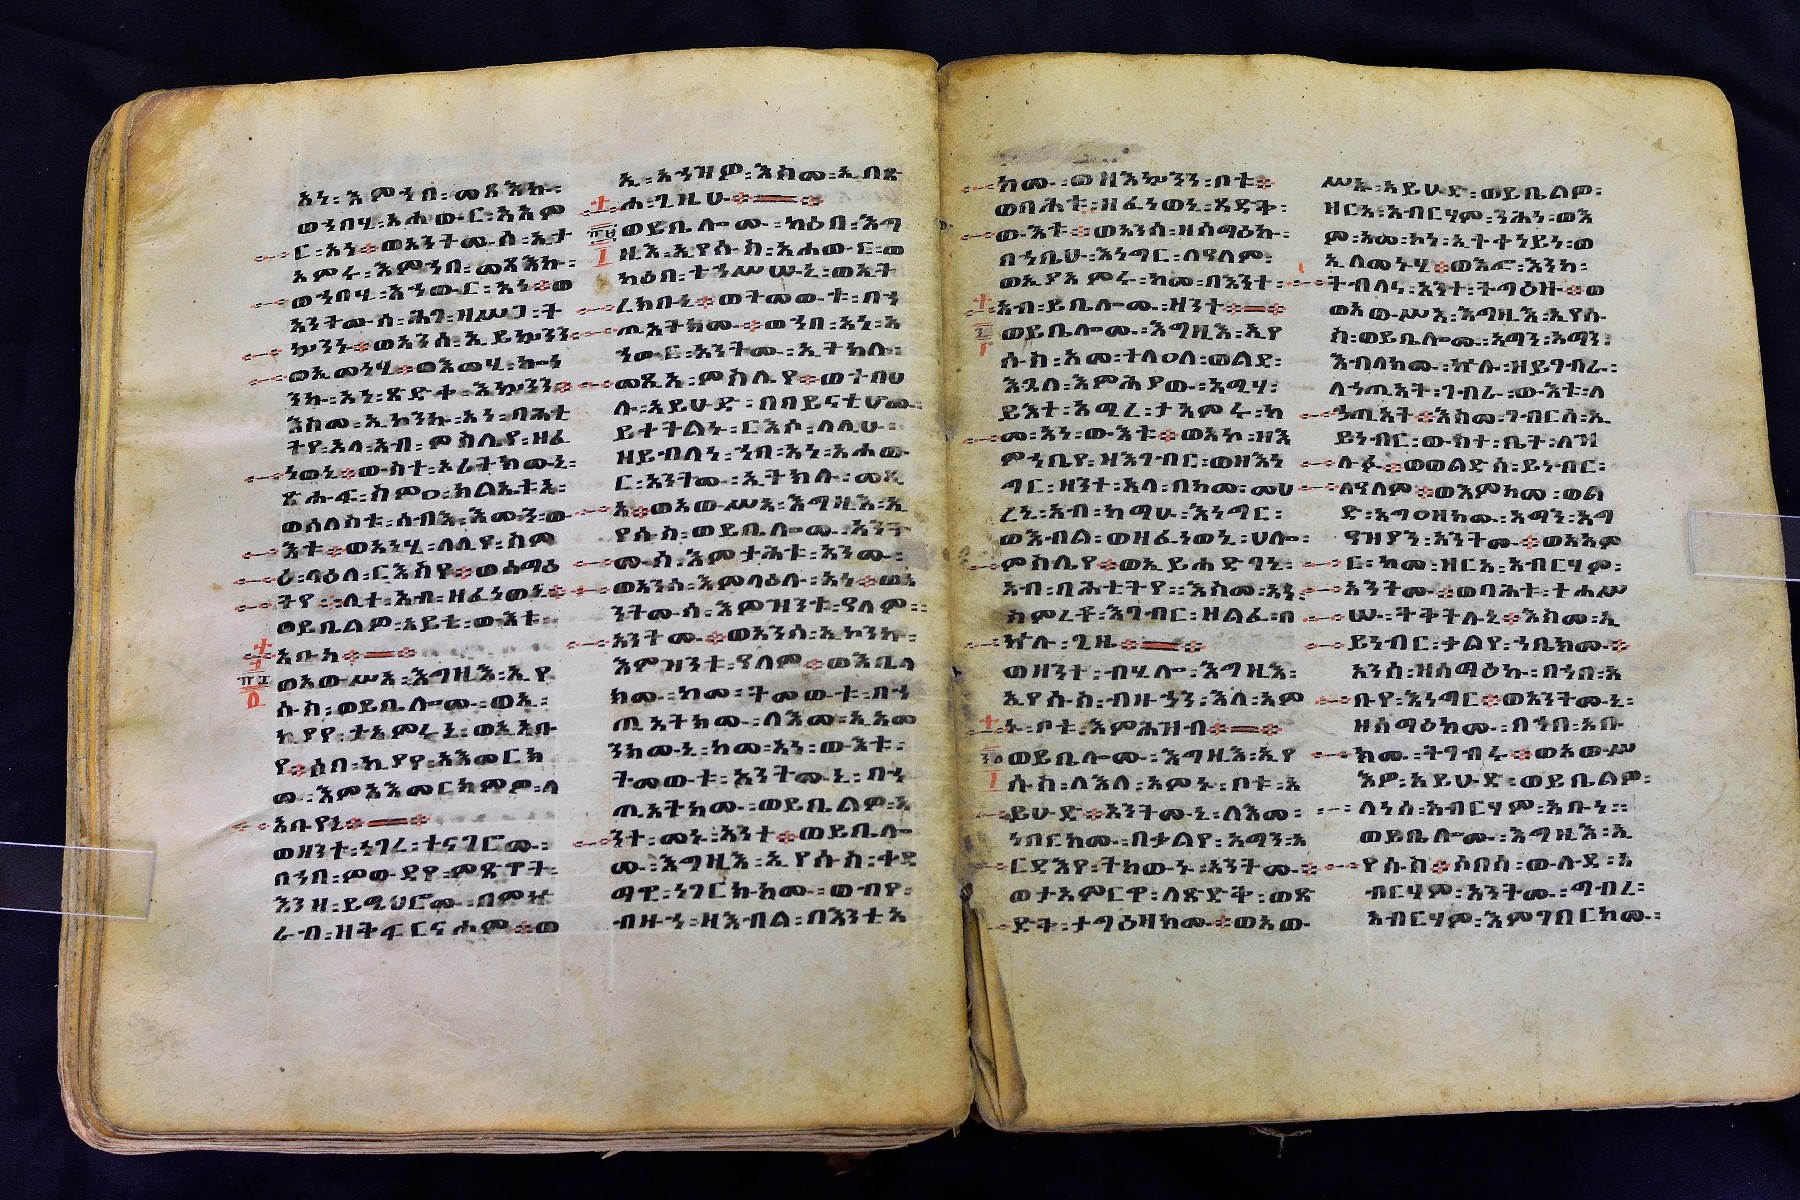 አነ፡እምኀበ፡መጻእኩ፡
ወኀበሂ፡አሐውር፡አአም
ር፡አነ፨ወአንትሙሰ፡ኢት
አምሩ፡እምኀበ፡መጻእኩ፡
ወኀበሂ፡አሐውር፡አነ፨ወ
አንትሙሰ፡ሕገ፡ዘሥጋ፡ት
ኴንኑ፨ወአንሰ፡ኢይኴንን
ወኢመነሂ፨ወእመሂ፡ኰነ
ንኩ፡አነ፡ጽድቀ፡እኴንን፨
እስመ፡ኢኮንኩ፡አነ፡ባሕቲ
ትየ፡አላ፡አብ፡ምስሌየ፡ዘፈ
ነወኒ፨ውስተ፡ኦሪትክሙኒ፡
ጽሑፍ፡ስምዐ፡ክልኤቱ፡
ወሰለስቱ፡ሰብእ፡እሙን፡ው
እቱ፨ወአነሂ፡ለሊየ፡ስም
ዕ፡ላዕለ፡ርእስየ፨ወሰማዕ
ትየ፡ሊተ፡አብ፡ዘፈነወኒ፨
ወይቤልዎ፡አይቴ፡ውእቱ፡
አቡከ፨
ወአውሥአ፡እግዚእ፡ኢየ
ሱስ፡ወይቤሎሙ፡ወኢ፡
ኪያየ፡ታአምሩኒ፡ወኢአቡ
የ፨ሶበ፡ኪያየ፡አእመርክ
ሙ፡እምአእመርክምዎ፡ለ
አቡየኒ፨
ወዘንተ፡ነገረ፡ተናገሮሙ፡
በኀበ፡ምውዳየ፡ምጽዋት፡
እንዘ፡ይሜህሮሙ፡በምኵ
ራብ፡፨ወ
ኢ፡አኀዝዎ፡እስመ፡ኢበጽ
ሐ፡ጊዜሁ፨
ወይቤሎሙ፡ካዕበ፡እግ
ዚእ፡ኢየሱስ፡አሐውር፡ወ
ካዕበ፡ተኀሥሡኒ፡ወኢት
ረክቡኒ፨ወትመውቱ፡በኀ
ጢአትክሙ፨ወኀበ፡አነ፡አ
ሐውር፡አንትሙ፡ኢትክሉ፡
መጺአ፡ምስሌየ፨ወተባህ
ሉ፡አይሁድ፡በበይናቲሆሙ፡
ይቀትልኑ፡ርእሶ፡ለሊሁ፡
ዘይብለነ፡ኀበ፡አነ፡አሐው
ር፡አንትሙ፡ኢትክሉ፡መጺ
አ፨ወአውሥአ፡እግዚእ፡ኢ
የሱስ፡ወይቤሎሙ፡አንት
ሙሰ፡እምታሕቱ፡አንሙ፡
ወአንሰ፡እምላዕሉ፡አነ፨ወአ
ንትሙሰ፡እምዝንቱ፡ዓለም፡
አንትሙ፨ወአንሰ፡ኢኮንኩ፡
እምዝንቱ፡ዓለም፨ወእቤለ
ክሙ፡ከመ፡ትመውቱ፡በኀ
ጢአትክሙ፡ለእመ፡ኢአመ
ንክሙኒ፡ከመ፡አነ፡ውእቱ፡
ትመውቱ፡አንትሙኒ፡በኀ
ጢአትክሙ፡ወይቤልዎ፡አ
ንተ፡መኑ፡አንተ፨ወይቤሎ
ሙ፡እግዚእ፡ኢየሱስ፡ቀዳ
ማዊ፡ነገርክክሙ፡ወብየ፡
ብዙኀ፡ዚእብል፡በእንቲአ
ክሙ፡ወዘእኴንን፡ቦቱ፨
ወባሕቱ፡ዘፈነወኒ፡ጻድቅ፡
ውእቱ፨ወአንሰ፡ዘሰማዕኩ፡
በኀቤሁ፡እነግር፡ለዓለም፡
ወኢያአምሩ፡ከመ፡በእንተ፡
አብ፡ይቤሎሙ፡ዘንተ፨
ወይቤሎሙ፡እግዚእ፡ኢየ
ሱስ፡አመ፡ተለዐለ፡ወልደ፡
እጓለ፡እምሕያው፡አሜሃ፡
ይእተ፡አሚረ፡ታአምሩ፡ከ
መ፡አነ፡ውእቱ፨ወአኮ፡ዘእ
ምኀቤየ፡ዘእገብር፡ወዘእነ
ግር፡ዘንተ፡አላ፡በከመ፡መሀ
ረኒ፡አብ፡ከማሁ፡እነግር፡
ወእብል፡ወዘፈነወኒ፡ሀሎ፡
ምስሌየ፨ወኢይሐድገኒ፡
አብ፡ባሕቲትየ፡እስመ፡አነ፡
ዘልፈ፡በ
ኵሉ፡ጊዜ፨
ወዘንተ፡ብሂሎ፡እግዚእ፡
ኢየሱስ፡ብዙኃን፡እለ፡አም
ኑ፡ቦቱ፡እምሕዝብ፨
ወይቤሎሙ፡እግዚእ፡ኢየ
ሱስ፡ለእለ፡አምኑ፡ቦቱ፡አ
ይሁድ፨አንትሙኒ፡ለእመ፡
ነበርክሙ፡በቃልየ፡አማን፡አ
ርዳእየ፡ትከውኑ፡አንትሙ፨
ወታአምርዋ፡ለጽድቅ፡ወጽ
ድቅ፡ታግዕዛክሙ፨ወአው
ሥኡ፡አይሁድ፡ወይቤልዎ፡
ዘርአ፡አብርሃም፡ንሕነ፡ወአ
ኢለመኑሂ፨ወእፎ፡እንከ፡
ትብለና፡አንተ፡ትግዕዙ፨ወ
ወአውሥአ፡እግዚእ፡ኢየሱ
ስ፡ወይቤሎሙ፡አማን፡አማን፡
እብለክሙ፡ኵሉ፡ዘይገብራ፡
ለኀጢአት፡ገብራ፡ውእቱ፡ለ
ኀጢአት፨እስመ፡ገብርሰ፡ኢ
ይነብር፡ውስተ፡ቤት፡ለዝ
ሉፉ፨ወወልድሰ፡ይነብር፡
ለዓለም፨ወእምከመ፡ወል
ድ፡አግዐዘክሙ፡አማን፡አግ
ዓዝያን፡አንትሙ፨ወአአም
ር፡ከመ፡ዘርአ፡አብርሃም፡
አንትሙ፨ወባሕቱ፡ተሐሥ
ሡ፡ትቅትሉኒ፨እስመ፡ኢ
ይነብር፡ቃልየ፡ኀቤክሙ፨
አንሰ፡ዘሰማዕኩ፡በኀበ፡አ
ቡየ፡እነግር፨ወአንትሙኒ፡
ዘሰማዕክሙ፡በኀበ፡አቡ
ክሙ፡ትገብሩ፨ወአውሥ
እዎ፡አይሁድ፡ወይቤልዎ፡
ለነሰ፡አብርሃም፡አቡነ፡፡
ወይቤሎሙ፡እግዚእ፡ኢ
የሱስ፨ሶበሰ፡ውሉደ፡አ
ብርሃም፡አንትሙ፡ግብረ፡
አብርሃም፡እምገበርክሙ፡